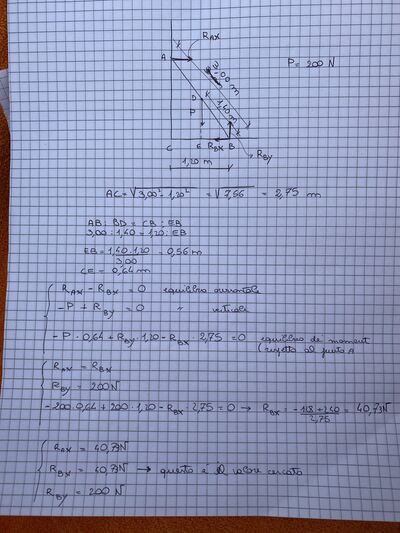 R_AX
A
P = 200 N
3,00 m
D
1,40 m
P
C E R_BX B R_BY
1,20 m
AC = √3,00² - 1,20² = √7,56 = 2,75 m
AB : BD = CB : EB
3,00 : 1,40 = 1,20 : EB
EB = 1,40 · 1,20 / 3,00 = 0,56 m
CE = 0,64 m
R_AX - R_BX = 0 equilibrio orizzontale
-P + R_BY = 0 " verticale
-P · 0,64 + R_BY · 1,20 - R_BX · 2,75 = 0 equilibrio dei momenti
(rispetto al punto A
R_AX = R_BX
R_BY = 200N
-200 · 0,64 + 200 · 1,20 - R_BX · 2,75 = 0 → R_BX = -128 + 240 / 2,75 = 40,73N
R_AX = 40,73N
R_BX = 40,73N → questo è il valore cercato
R_BY = 200 N